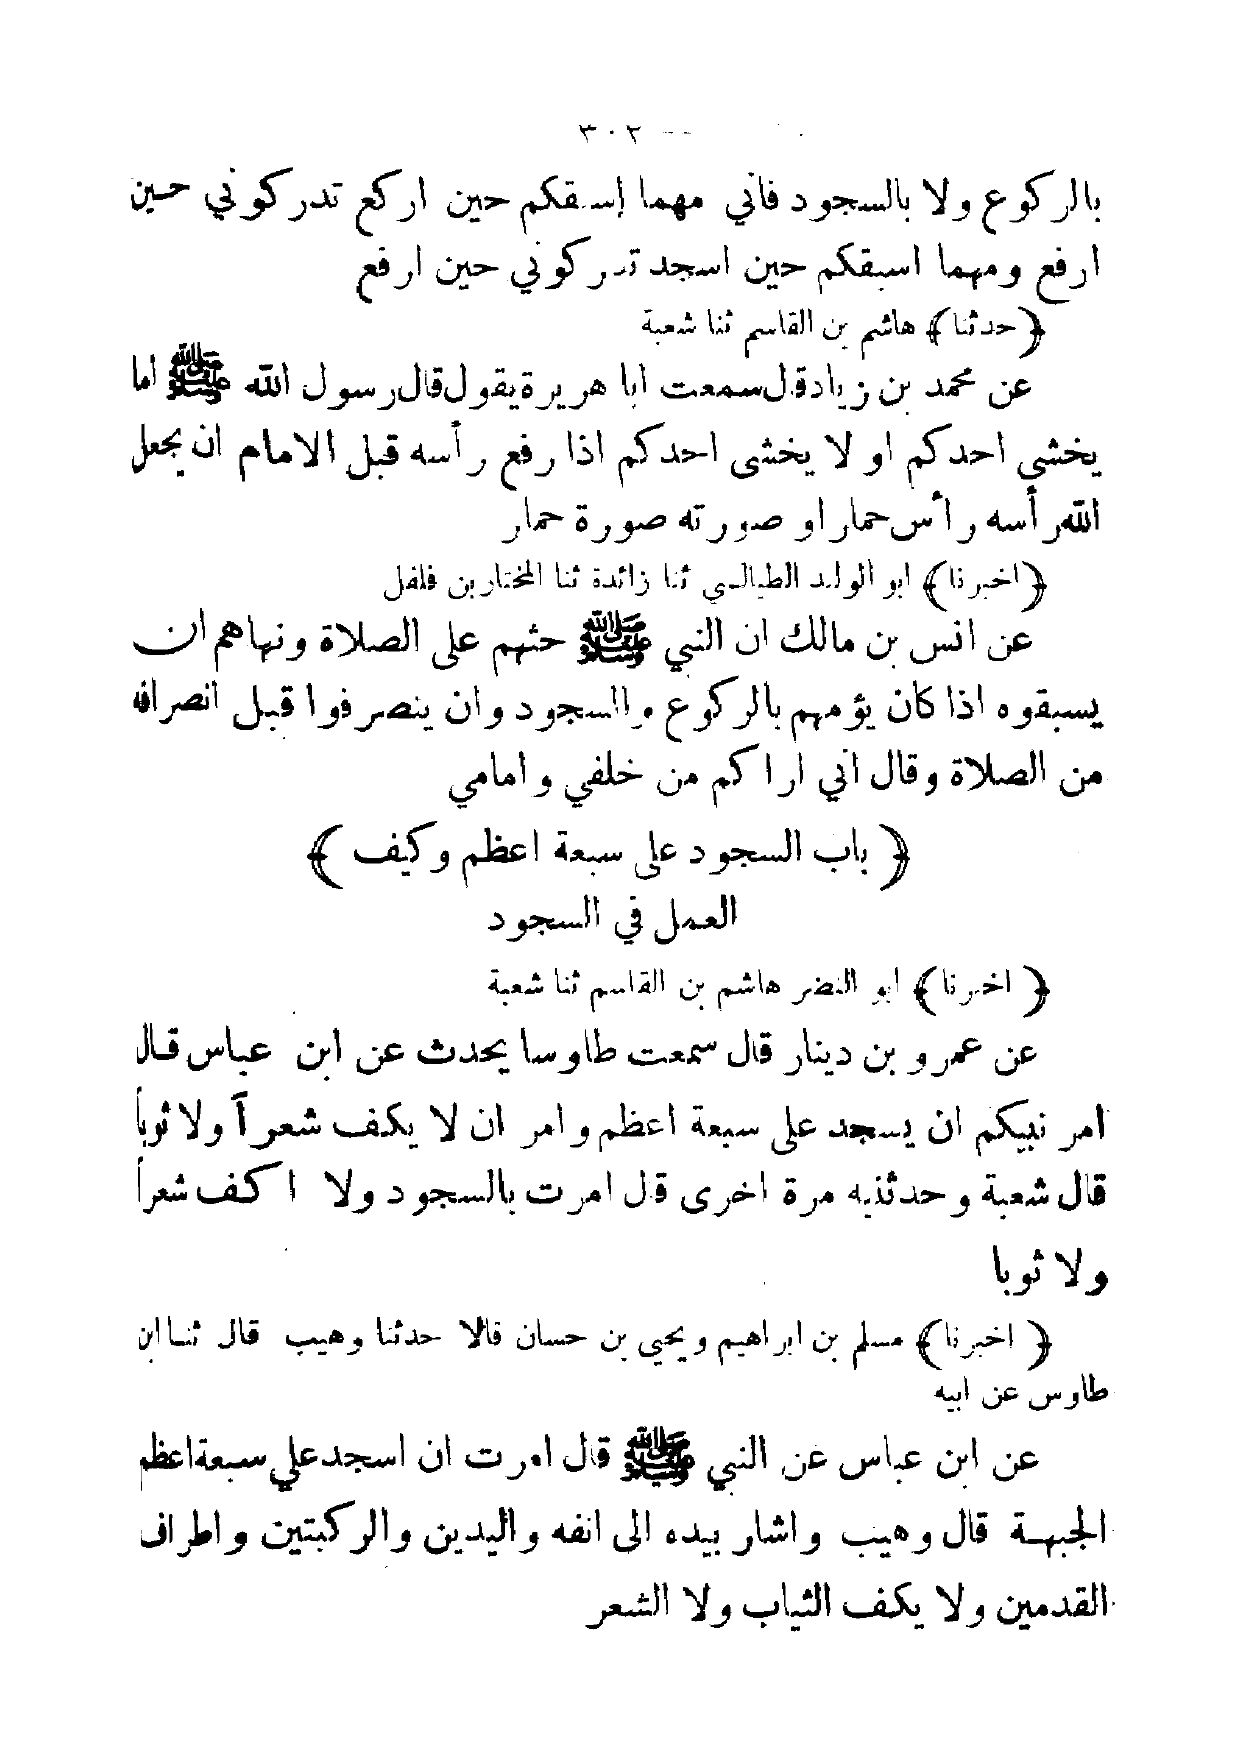 ٣٠٢ --
بالركوع ولا بالسجود فاني مهما إسبقكم حين اركع تدركوني حين
ارفع ومهما اسبقكم حين اسجد تدركوني حين ارفع
﴿حدثنا﴾ هاشم بن القاسم ثنا شعبة
عن محمد بن زياد قال سمعت ابا هريرة يقول قال رسول الله ﷺ اما
يخشى احدكم او لا يخشى احدكم اذا رفع رأسه قبل الامام ان يجعل
الله رأسه رأس حمار او صورته صورة حمار
﴿اخبرنا﴾ ابو الوليد الطيالسي ثنا زائدة ثنا المختار بن فلفل
عن انس بن مالك ان النبي ﷺ حثهم على الصلاة ونهاهم ان
يسبقوه اذا كان يؤمهم بالركوع والسجود وان ينصرفوا قبل انصرافه
من الصلاة وقال اني اراكم من خلفي وامامي
﴿ باب السجود على سبعة اعظم وكيف ﴾
العمل في السجود
﴿ اخبرنا﴾ ابو النضر هاشم بن القاسم ثنا شعبة
عن عمرو بن دينار قال سمعت طاوسا يحدث عن ابن عباس قال
امر نبيكم ان يسجد على سبعة اعظم وامر ان لا يكف شعراً ولا ثوبا
قال شعبة وحدثنيه مرة اخرى قال امرت بالسجود ولا اكف شعرا
ولا ثوبا
﴿ اخبرنا﴾ مسلم بن ابراهيم ويحيى بن حسان قالا حدثنا وهيب قال ثنا ابن
طاوس عن ابيه
عن ابن عباس عن النبي ﷺ قال امرت ان اسجد على سبعة اعظم
الجبهة قال وهيب واشار بيده الى انفه واليدين والركبتين واطراف
القدمين ولا يكف الثياب ولا الشعر